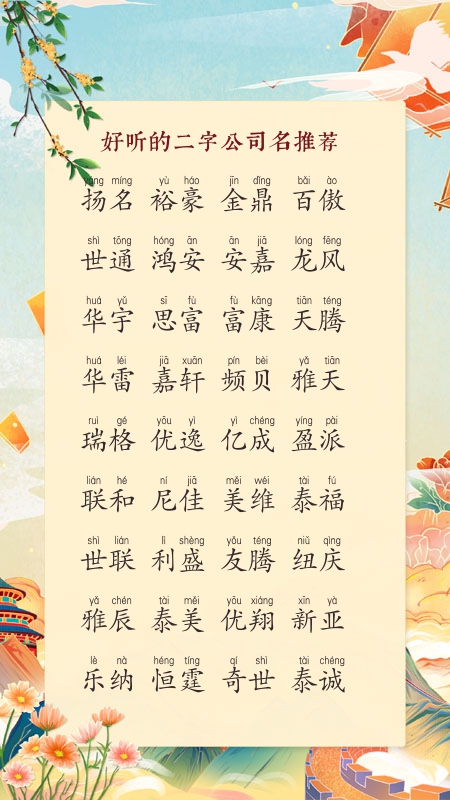 好听的二字公司名推荐
yáng míng yù háo jīn dǐng bǎi ào
扬名 裕豪 金鼎 百傲
shì tōng hóng ān ān jiā lóng fēng
世通 鸿安 安嘉 龙风
huá yǔ sī fù fù kāng tiān téng
华宇 思富 富康 天腾
huá léi jiā xuān pín bèi yǎ tiān
华雷 嘉轩 频贝 雅天
ruì gé yōu yì yì chéng yíng pài
瑞格 优逸 亿成 盈派
lián hé ní jiā měi wéi tài fú
联和 尼佳 美维 泰福
shì lián lì shèng yǒu téng niǔ qìng
世联 利盛 友腾 纽庆
yǎ chén tài měi yōu xiáng xīn yà
雅辰 泰美 优翔 新亚
lè nà héng tíng qí shì tài chéng
乐纳 恒霆 奇世 泰诚